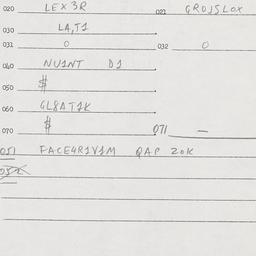 020 LEX3R 021 GROJSLOX
030 LA,T1
031 0 032 0
040 NU1NT D1
050 $
060 GL8AT1K
070 $ 071 —
051 FACE4R1V1M QAP 20K
052